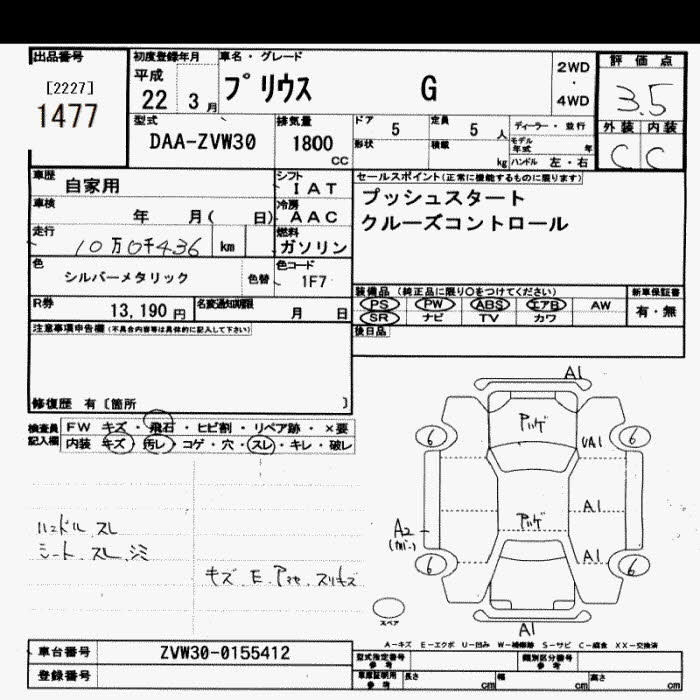 出品番号
[2227]
1477
初度登録年月
平成
22 3 月
車名・グレード
プリウス G
2WD
・
4WD
評価点
3.5
外装 内装
C C
型式
DAA-ZVW30
排気量
1800
CC
ドア
5
定員
5
人
形状
積載
kg
ディーラー・並行
モデル
年式
年
ハンドル 左・右
車歴
自家用
シフト
IAT
車検
年 月( 日)
冷房
AAC
走行
10万0千436 km
燃料
ガソリン
色
シルバーメタリック
色替
色コード
1F7
R券
13,190 円
名変通知期限
月 日
セールスポイント(正常に機能するものに限ります)
プッシュスタート
クルーズコントロール
装備品 (純正品に限り○をつけてください)
PS PW ABS エアB AW
SR ナビ TV カワ
新車保証書
有・無
後日品
注意事項申告欄(不具合内容等は具体的に記入して下さい)
修復歴 有 [箇所 ]
検査員
記入欄
FW キズ・飛石・ヒビ割・リペア跡・×要
内装 キズ・汚レ・コゲ・穴・スレ・キレ・破レ
ハンドル スレ
シート スレ シミ
A1
6
6
UA1
A1
A2
A1
6
6
A1
スペア
A-キズ E-エクボ U-凹み W-補修跡 S-サビ C-腐食 XX-交換済
車台番号
ZVW30-0155412
登録番号
型式指定番号
参考
類別区分番号
参考
車庫証明用
参考
長さ
cm
幅
cm
高さ
cm